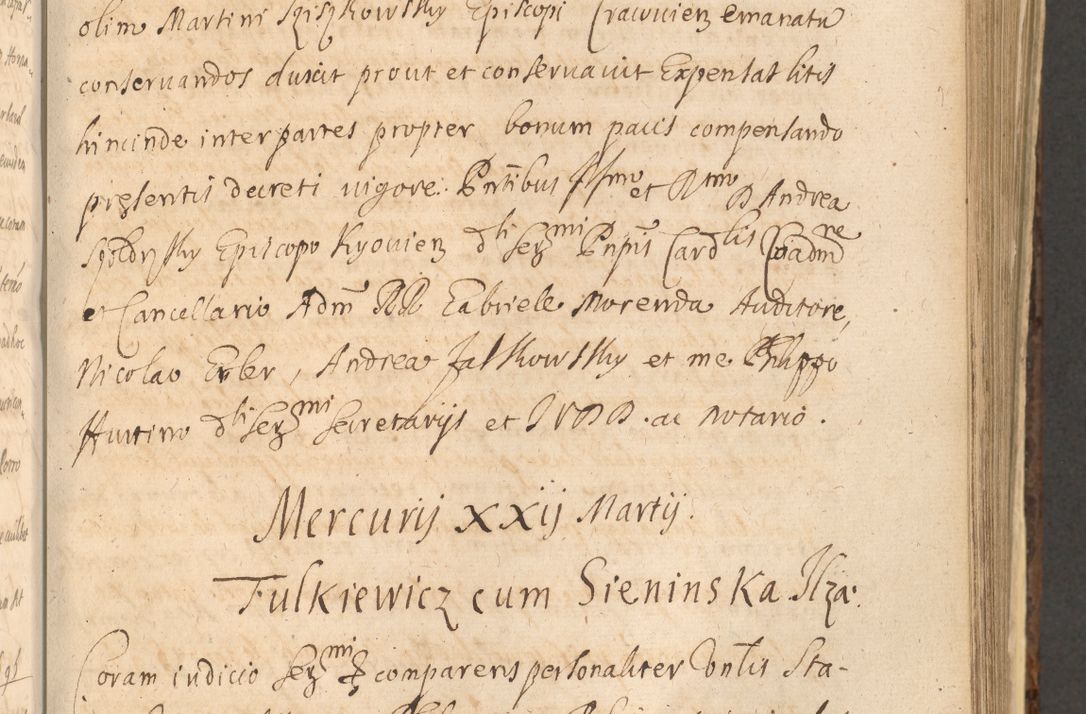 olim Martini Szyszkowsky Episcopi Cracovien emanatu
conservandos duxit prout et conservavit Expensas litis
hincinde inter partes propter bonum pacis compensando
presentis decreti vigore. Pntibus Illmo et Rmo D Andrea
Szołdrsky Episcopo Kyovien dti Serzmi Pnpis Cardlis Coadmne
et Cancellario Adm RR Gabriele Morenda Auditore,
Nicolao Erler, Andrea Jalkowsky et me Philippo
Huttino dti Serzmi Secretarijs et IVDD. ac Notario.
Mercurij XXij Martij.
Fulkiewicz cum Sieninska Ilza.
Coram iudicio Serzmi comparens personaliter Vontis Sta-